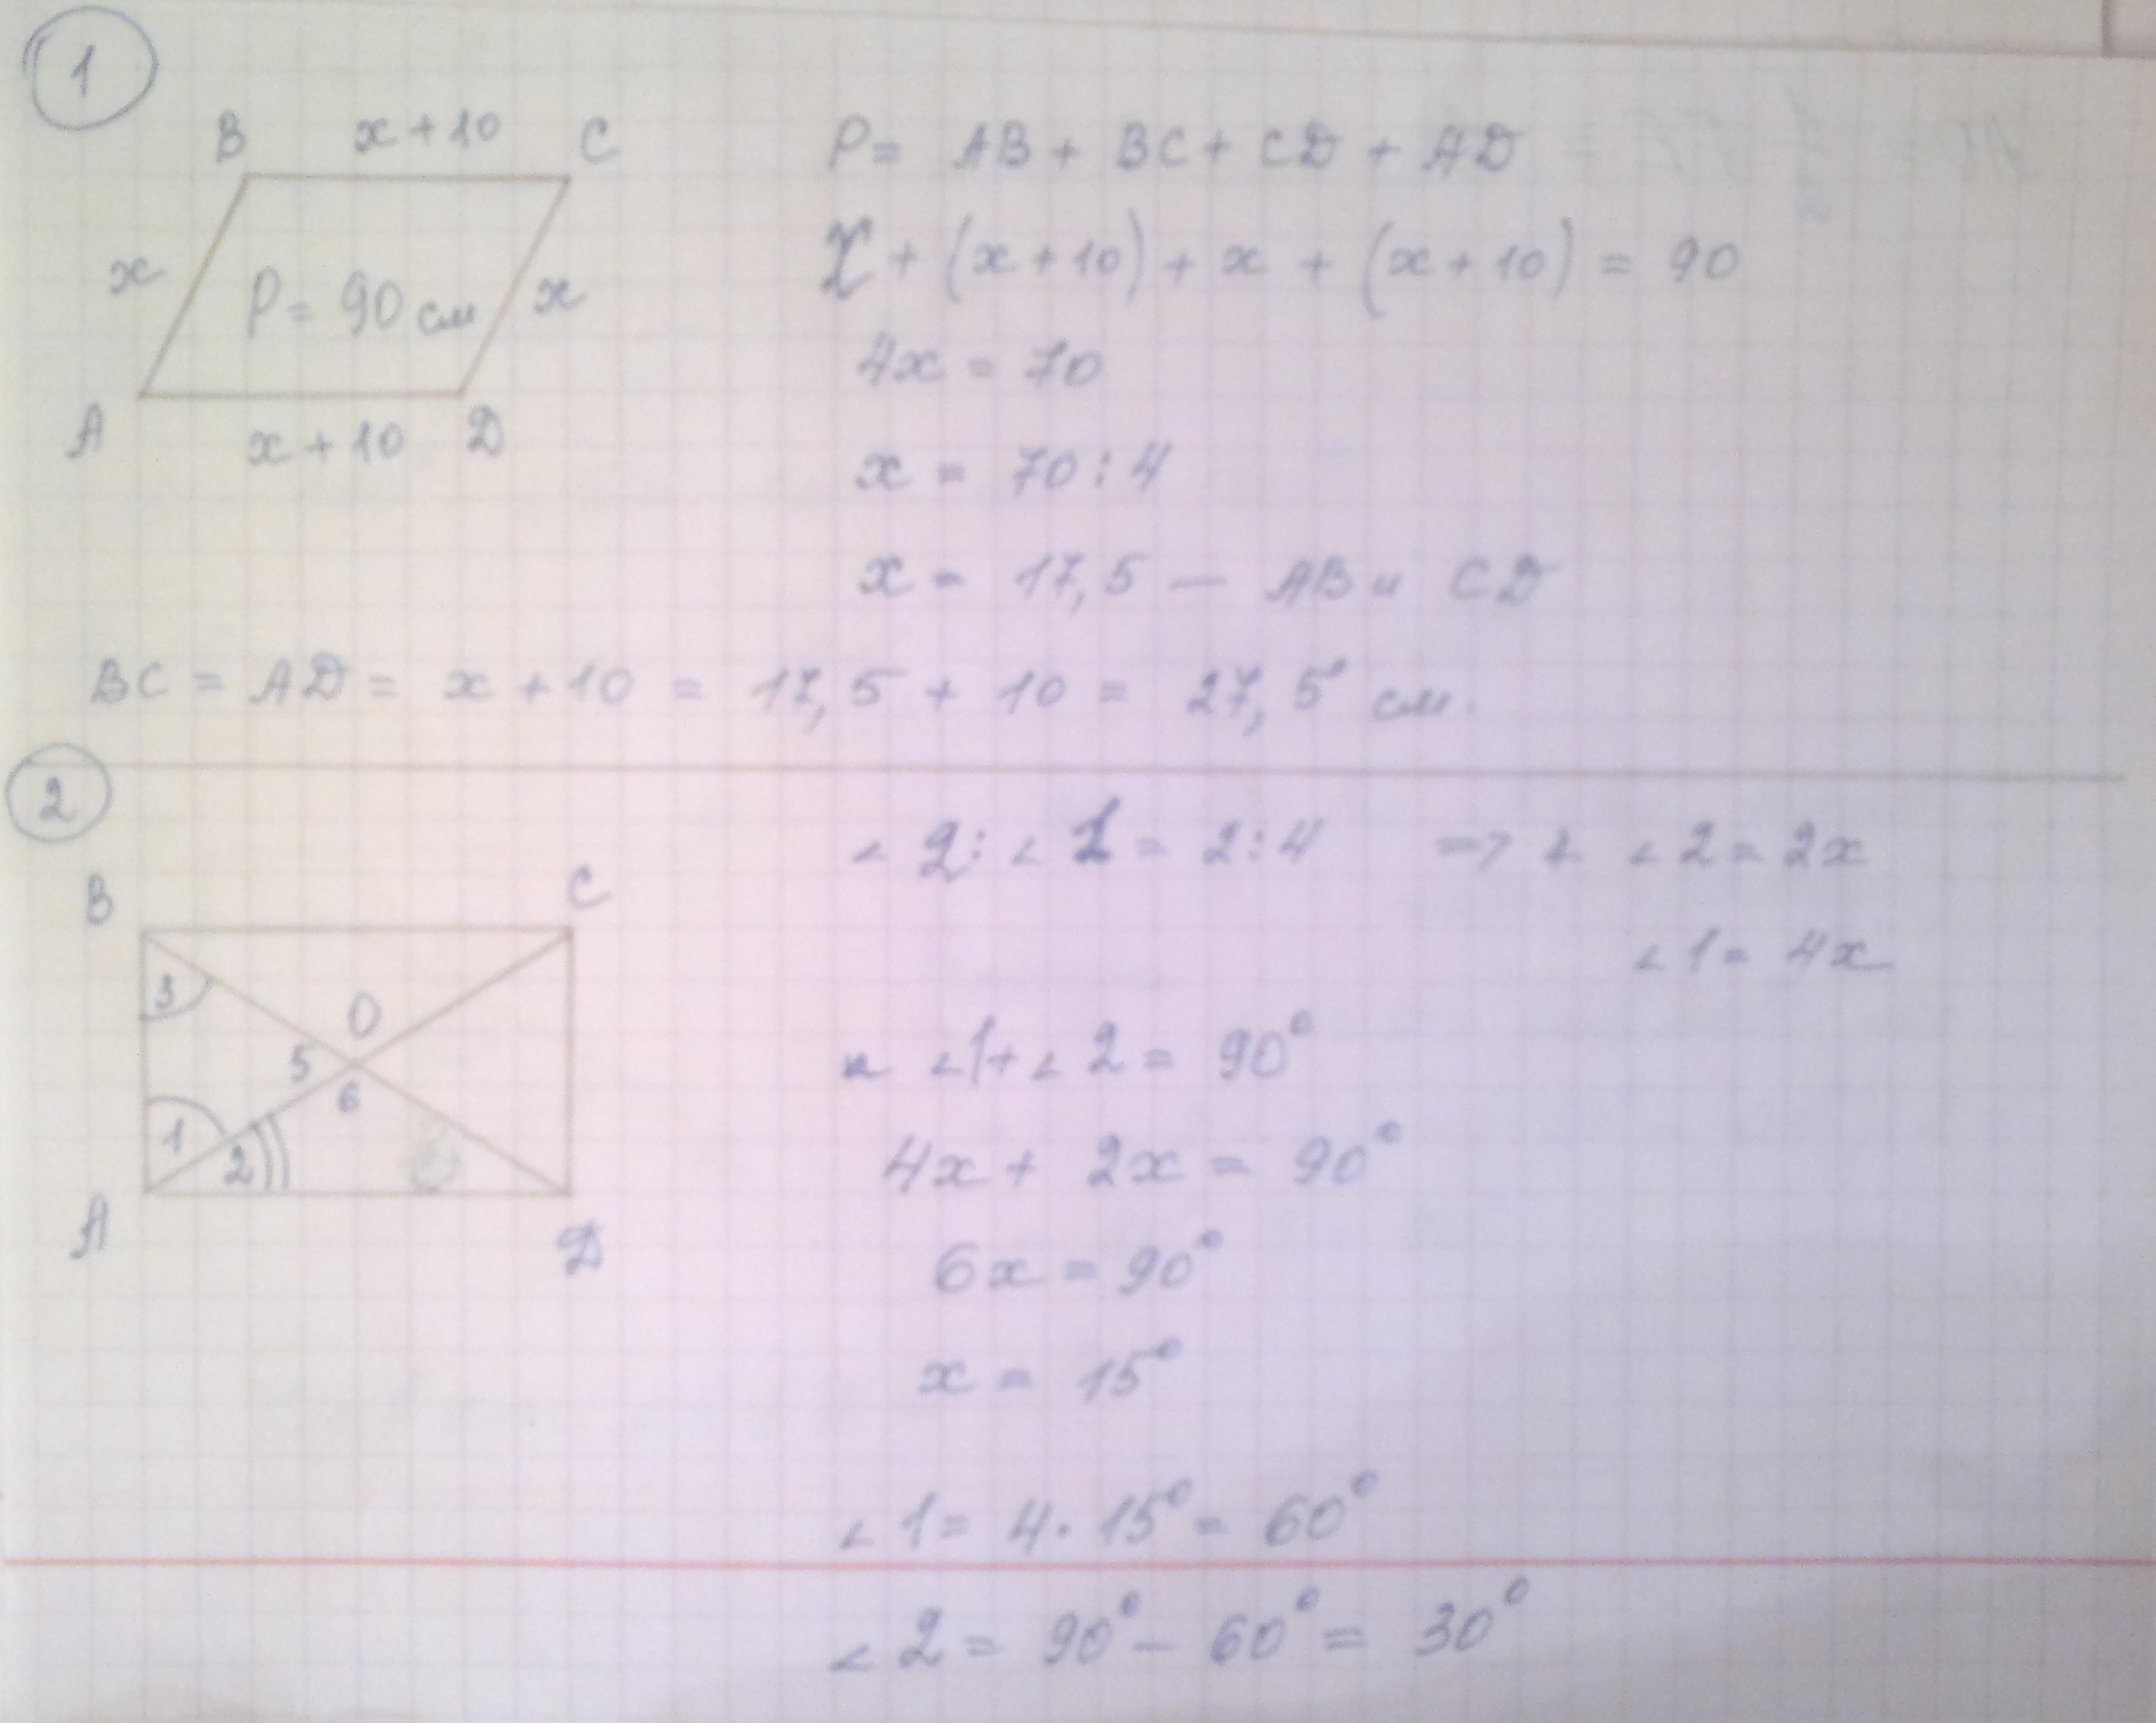 1
B x+10 C
x P= 90 см x
A x+10 D
P= AB + BC + CD + AD
x + (x+10) + x + (x+10) = 90
4x = 70
x = 70:4
x = 17,5 — AB и CD
BC = AD = x+10 = 17,5 + 10 = 27,5 см.
2
B C
3
O
5
6
1
2
A D
∠2:∠1 = 2:4 => ∠2 = 2x
∠1 = 4x
∠1+∠2 = 90°
4x + 2x = 90°
6x = 90°
x = 15°
∠1 = 4·15° = 60°
∠2 = 90° – 60° = 30°